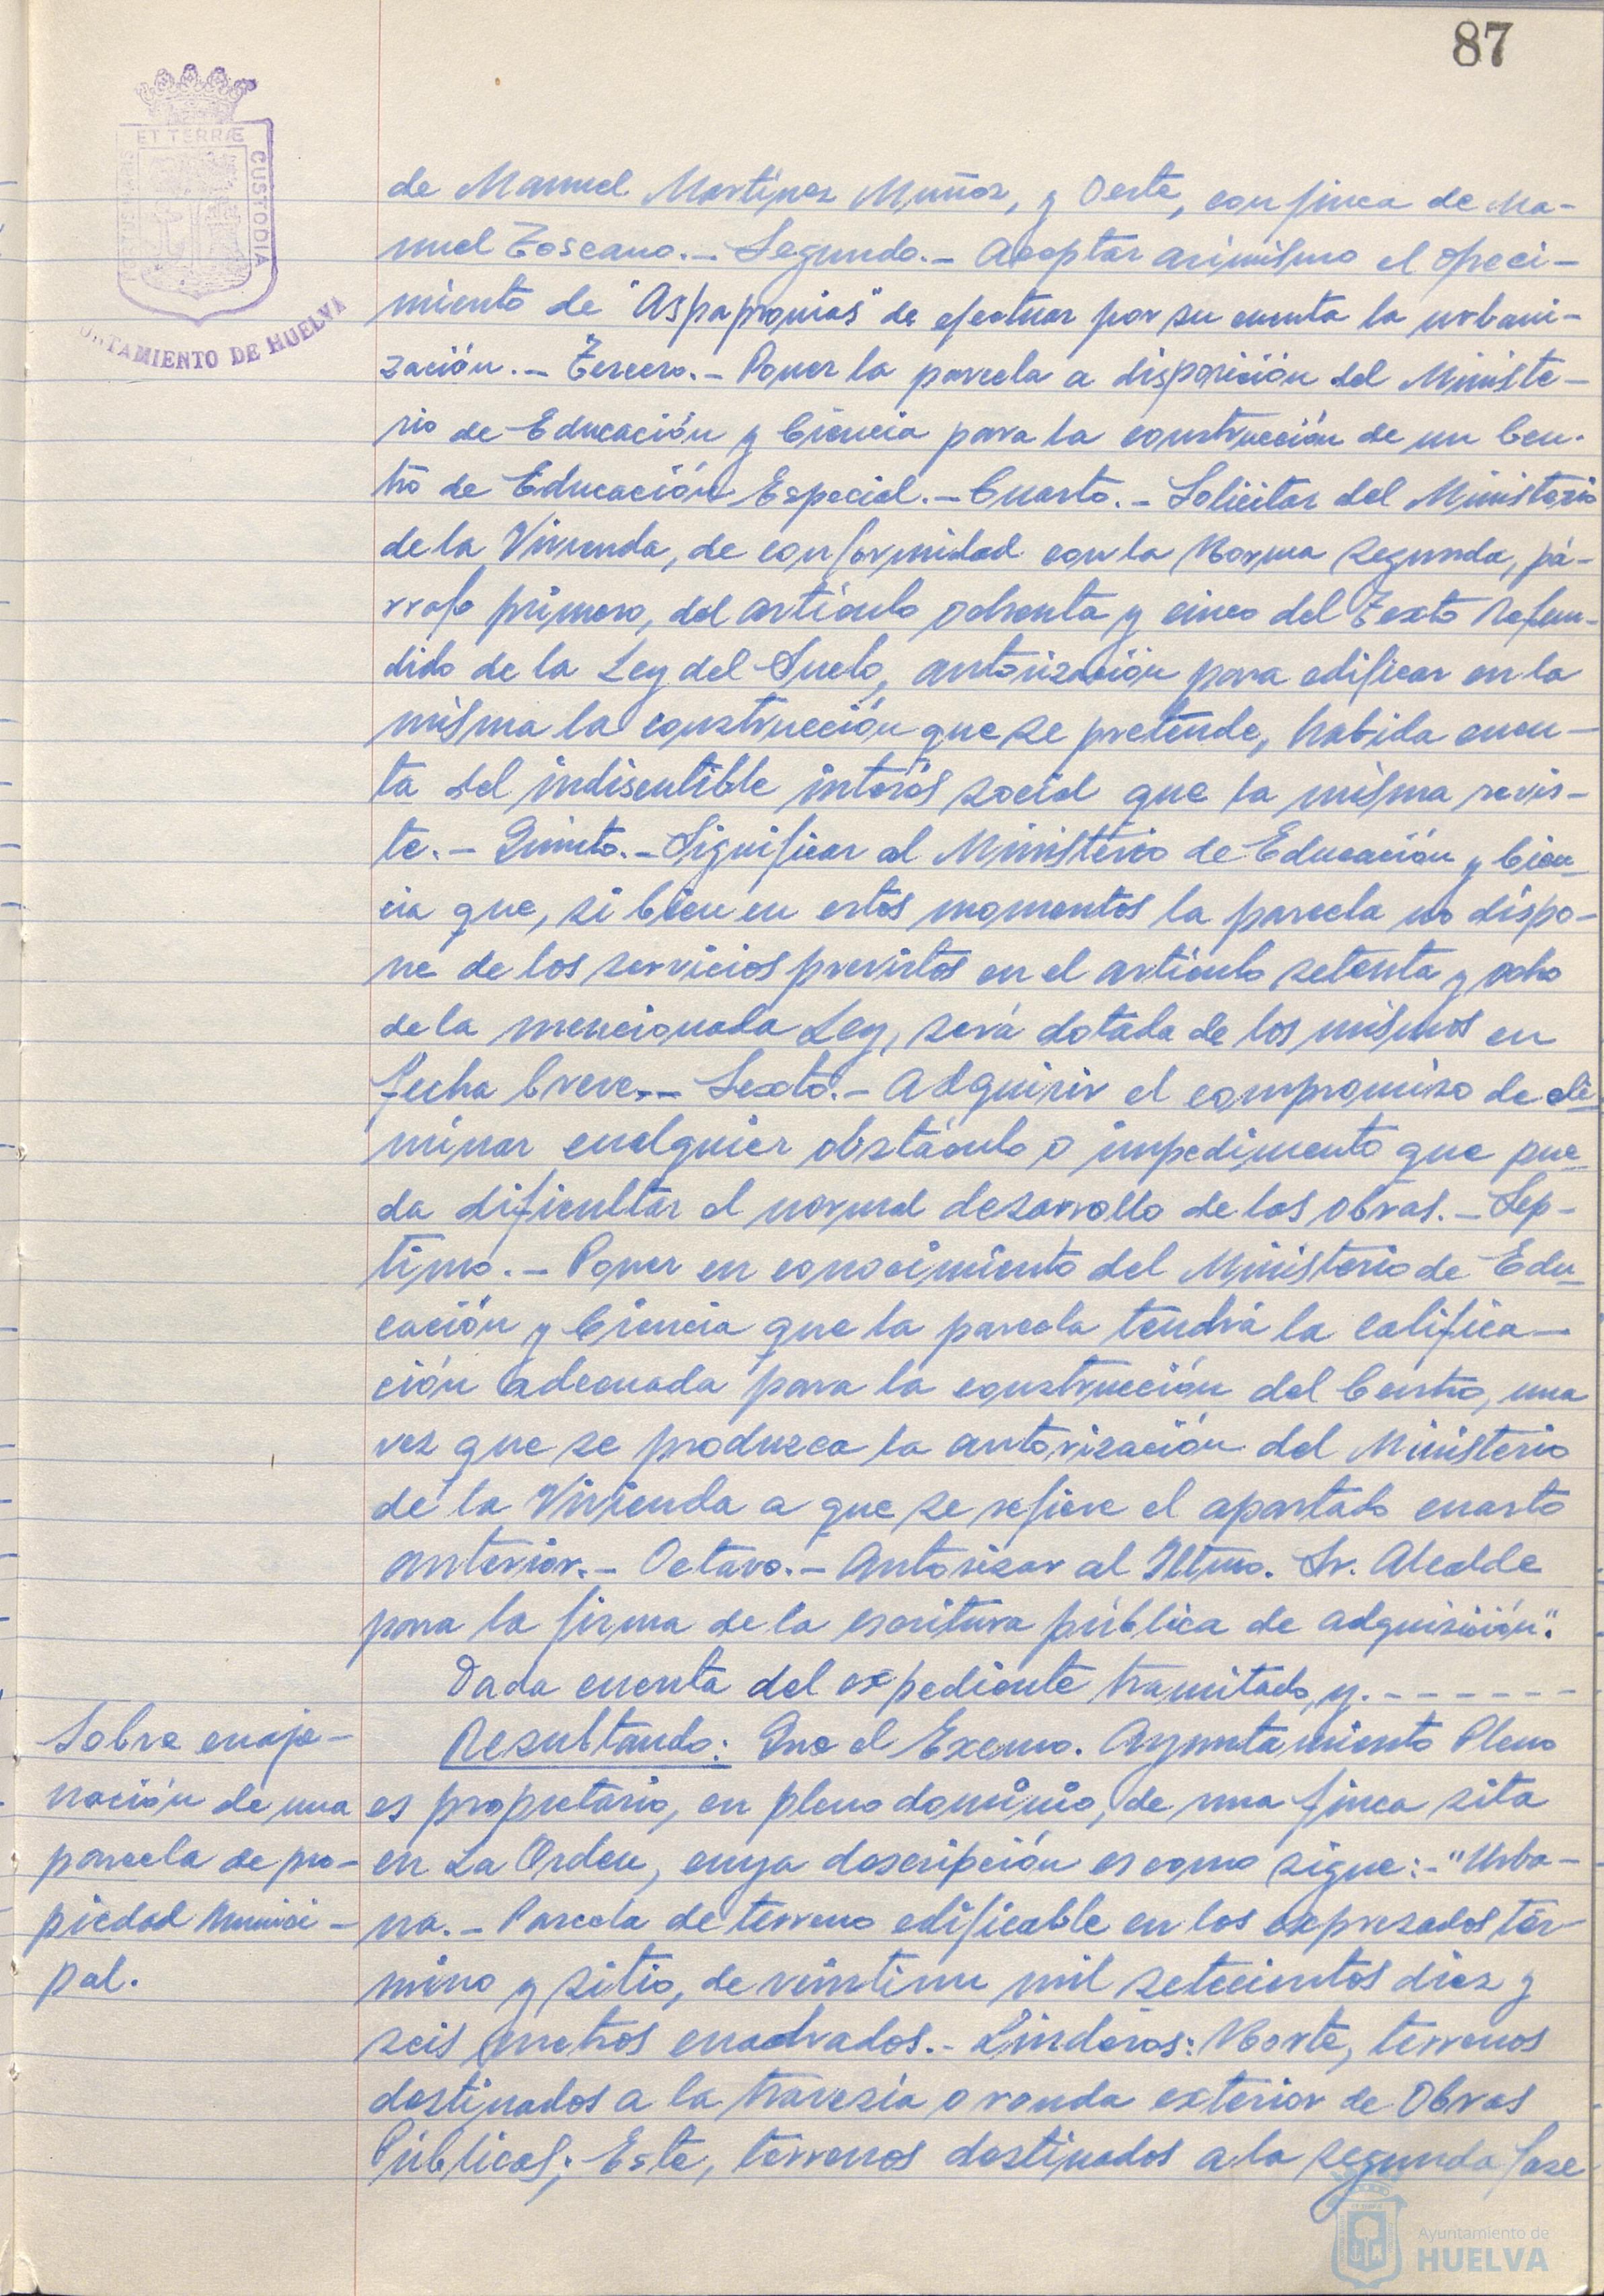 87
PORTUS MARIS
ET TERRÆ
CUSTODIA
TAMIENTO DE HUELVA
de Manuel Martínez Muñoz, y Oeste, con finca de Ma-
nuel Toscano.- Segundo.- Aceptar asimismo el ofreci-
miento de "Aspapronias" de efectuar por su cuenta la urbani-
zación.- Tercero.- Poner la parcela a disposición del Ministe-
rio de Educación y Ciencia para la construcción de un Cen-
tro de Educación Especial.- Cuarto.- Solicitar del Ministerio
de la Vivienda, de conformidad con la Norma segunda, pá-
rrafo primero, del artículo ochenta y cinco del Texto Refun-
dido de la Ley del Suelo, autorización para edificar en la
misma la construcción que se pretende, habida cuen-
ta del indiscutible interés social que la misma revis-
te.- Quinto.- Significar al Ministerio de Educación y Cien-
cia que, si bien en estos momentos la parcela no dispo-
ne de los servicios previstos en el artículo setenta y ocho
de la mencionada Ley, será dotada de los mismos en
fecha breve.- Sexto.- Adquirir el compromiso de eli-
minar cualquier obstáculo o impedimento que pue-
da dificultar el normal desarrollo de las obras.- Sép-
timo.- Poner en conocimiento del Ministerio de Edu-
cación y Ciencia que la parcela tendrá la califica-
ción adecuada para la construcción del Centro, una
vez que se produzca la autorización del Ministerio
de la Vivienda a que se refiere el apartado cuarto
anterior.- Octavo.- Autorizar al Iltmo. Sr. Alcalde
para la firma de la escritura pública de adquisición".
Dada cuenta del expediente tramitado, y.- - - - - -
Sobre enaje-
nación de una
parcela de pro-
piedad Munici-
pal.
Resultando: Que el Excmo. Ayuntamiento Pleno
es propietario, en pleno dominio, de una finca sita
en La Orden, cuya descripción es como sigue:- "Urba-
na.- Parcela de terreno edificable en los expresados tér-
mino y sitio, de veintiun mil setecientos diez y
seis metros cuadrados.- Linderos: Norte, terrenos
destinados a la travesía o ronda exterior de Obras
Públicas; Este, terrenos destinados a la segunda fase
Ayuntamiento de
HUELVA